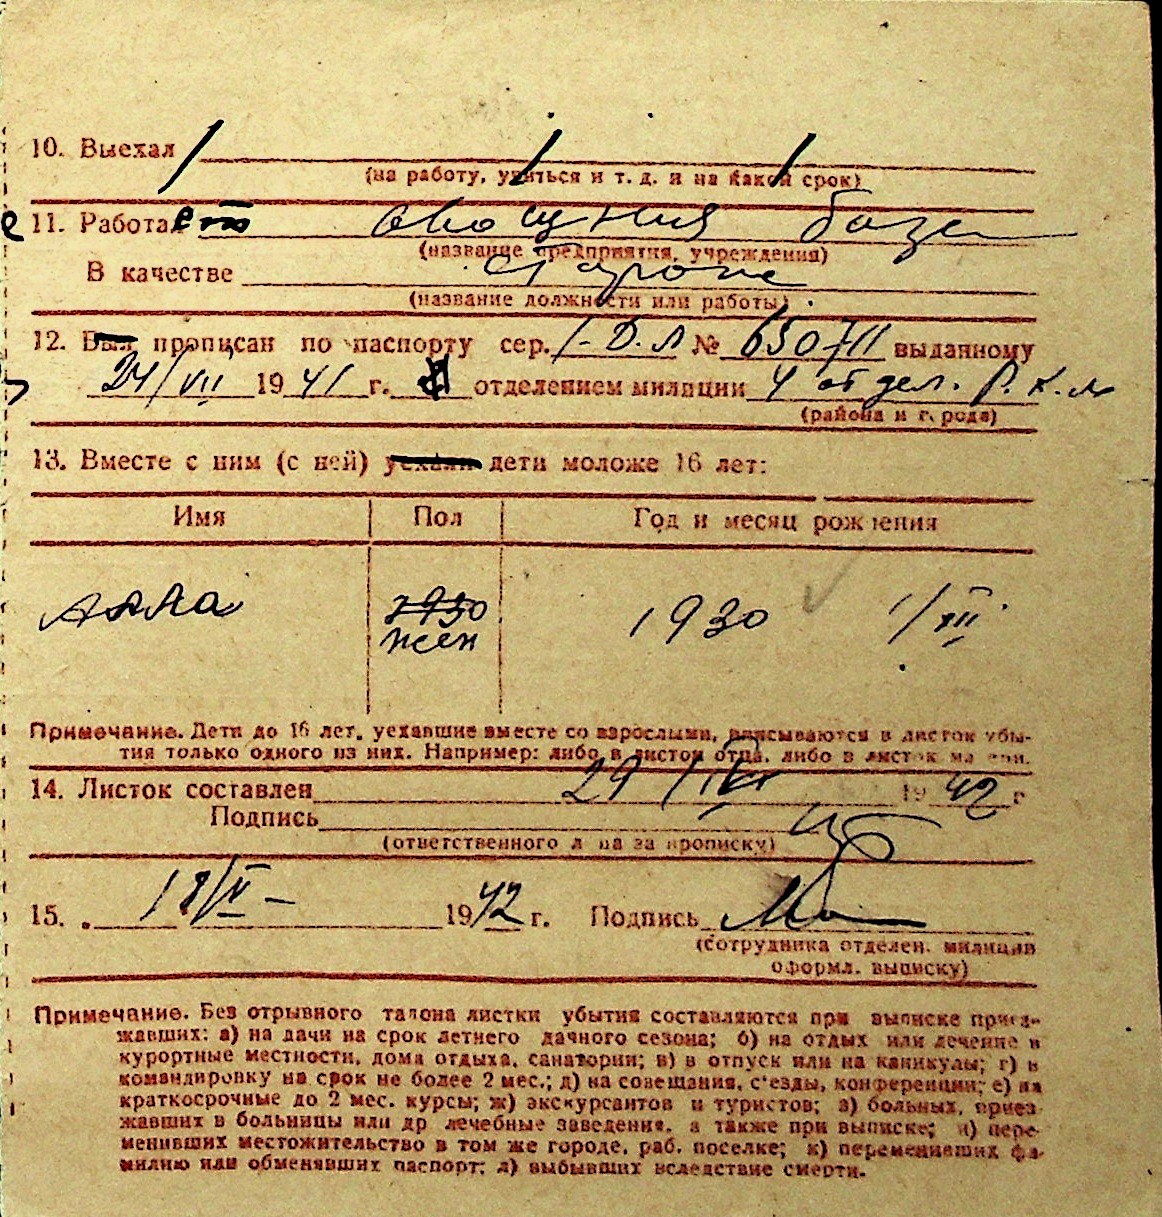 10. Выехал
(на работу, учиться и т. д. и на какой срок)
11. Работает овощная база
(название предприятия, учреждения)
В качестве сторож
(название должности или работы)
12. Был прописан по паспорту сер. I-ДЛ № 650711 выданному
24/VII 1941 г. отделением милиции 4 отдел. Р.К.М
(района и города)
13. Вместе с ним (с ней) уехали дети моложе 16 лет:
Имя Пол Год и месяц рождения
Алла 1930 1930 1/XII
жен
Примечание. Дети до 16 лет, уехавшие вместе со взрослыми, вписываются в листок убы-
тия только одного из них. Например: либо в листок отца, либо в листок матери.
14. Листок составлен 29 1942 г
Подпись
(ответственного лица за прописку)
15. 18/V- 1942 г. Подпись
(сотрудника отделен. милиции
оформл. выписку)
Примечание. Без отрывного талона листки убытия составляются при выписке приез-
жавших: а) на дачи на срок летнего дачного сезона; б) на отдых или лечение в
курортные местности, дома отдыха, санатории; в) в отпуск или на каникулы; г) в
командировку на срок не более 2 мес.; д) на совещания, с'езды, конференции; е) на
краткосрочные до 2 мес. курсы; ж) экскурсантов и туристов; з) больных, приез-
жавших в больницы или др лечебные заведения, а также при выписке; и) пере-
менивших местожительство в том же городе, раб. поселке; к) переменивших фа-
милию или обменявших паспорт; л) выбывших вследствие смерти.